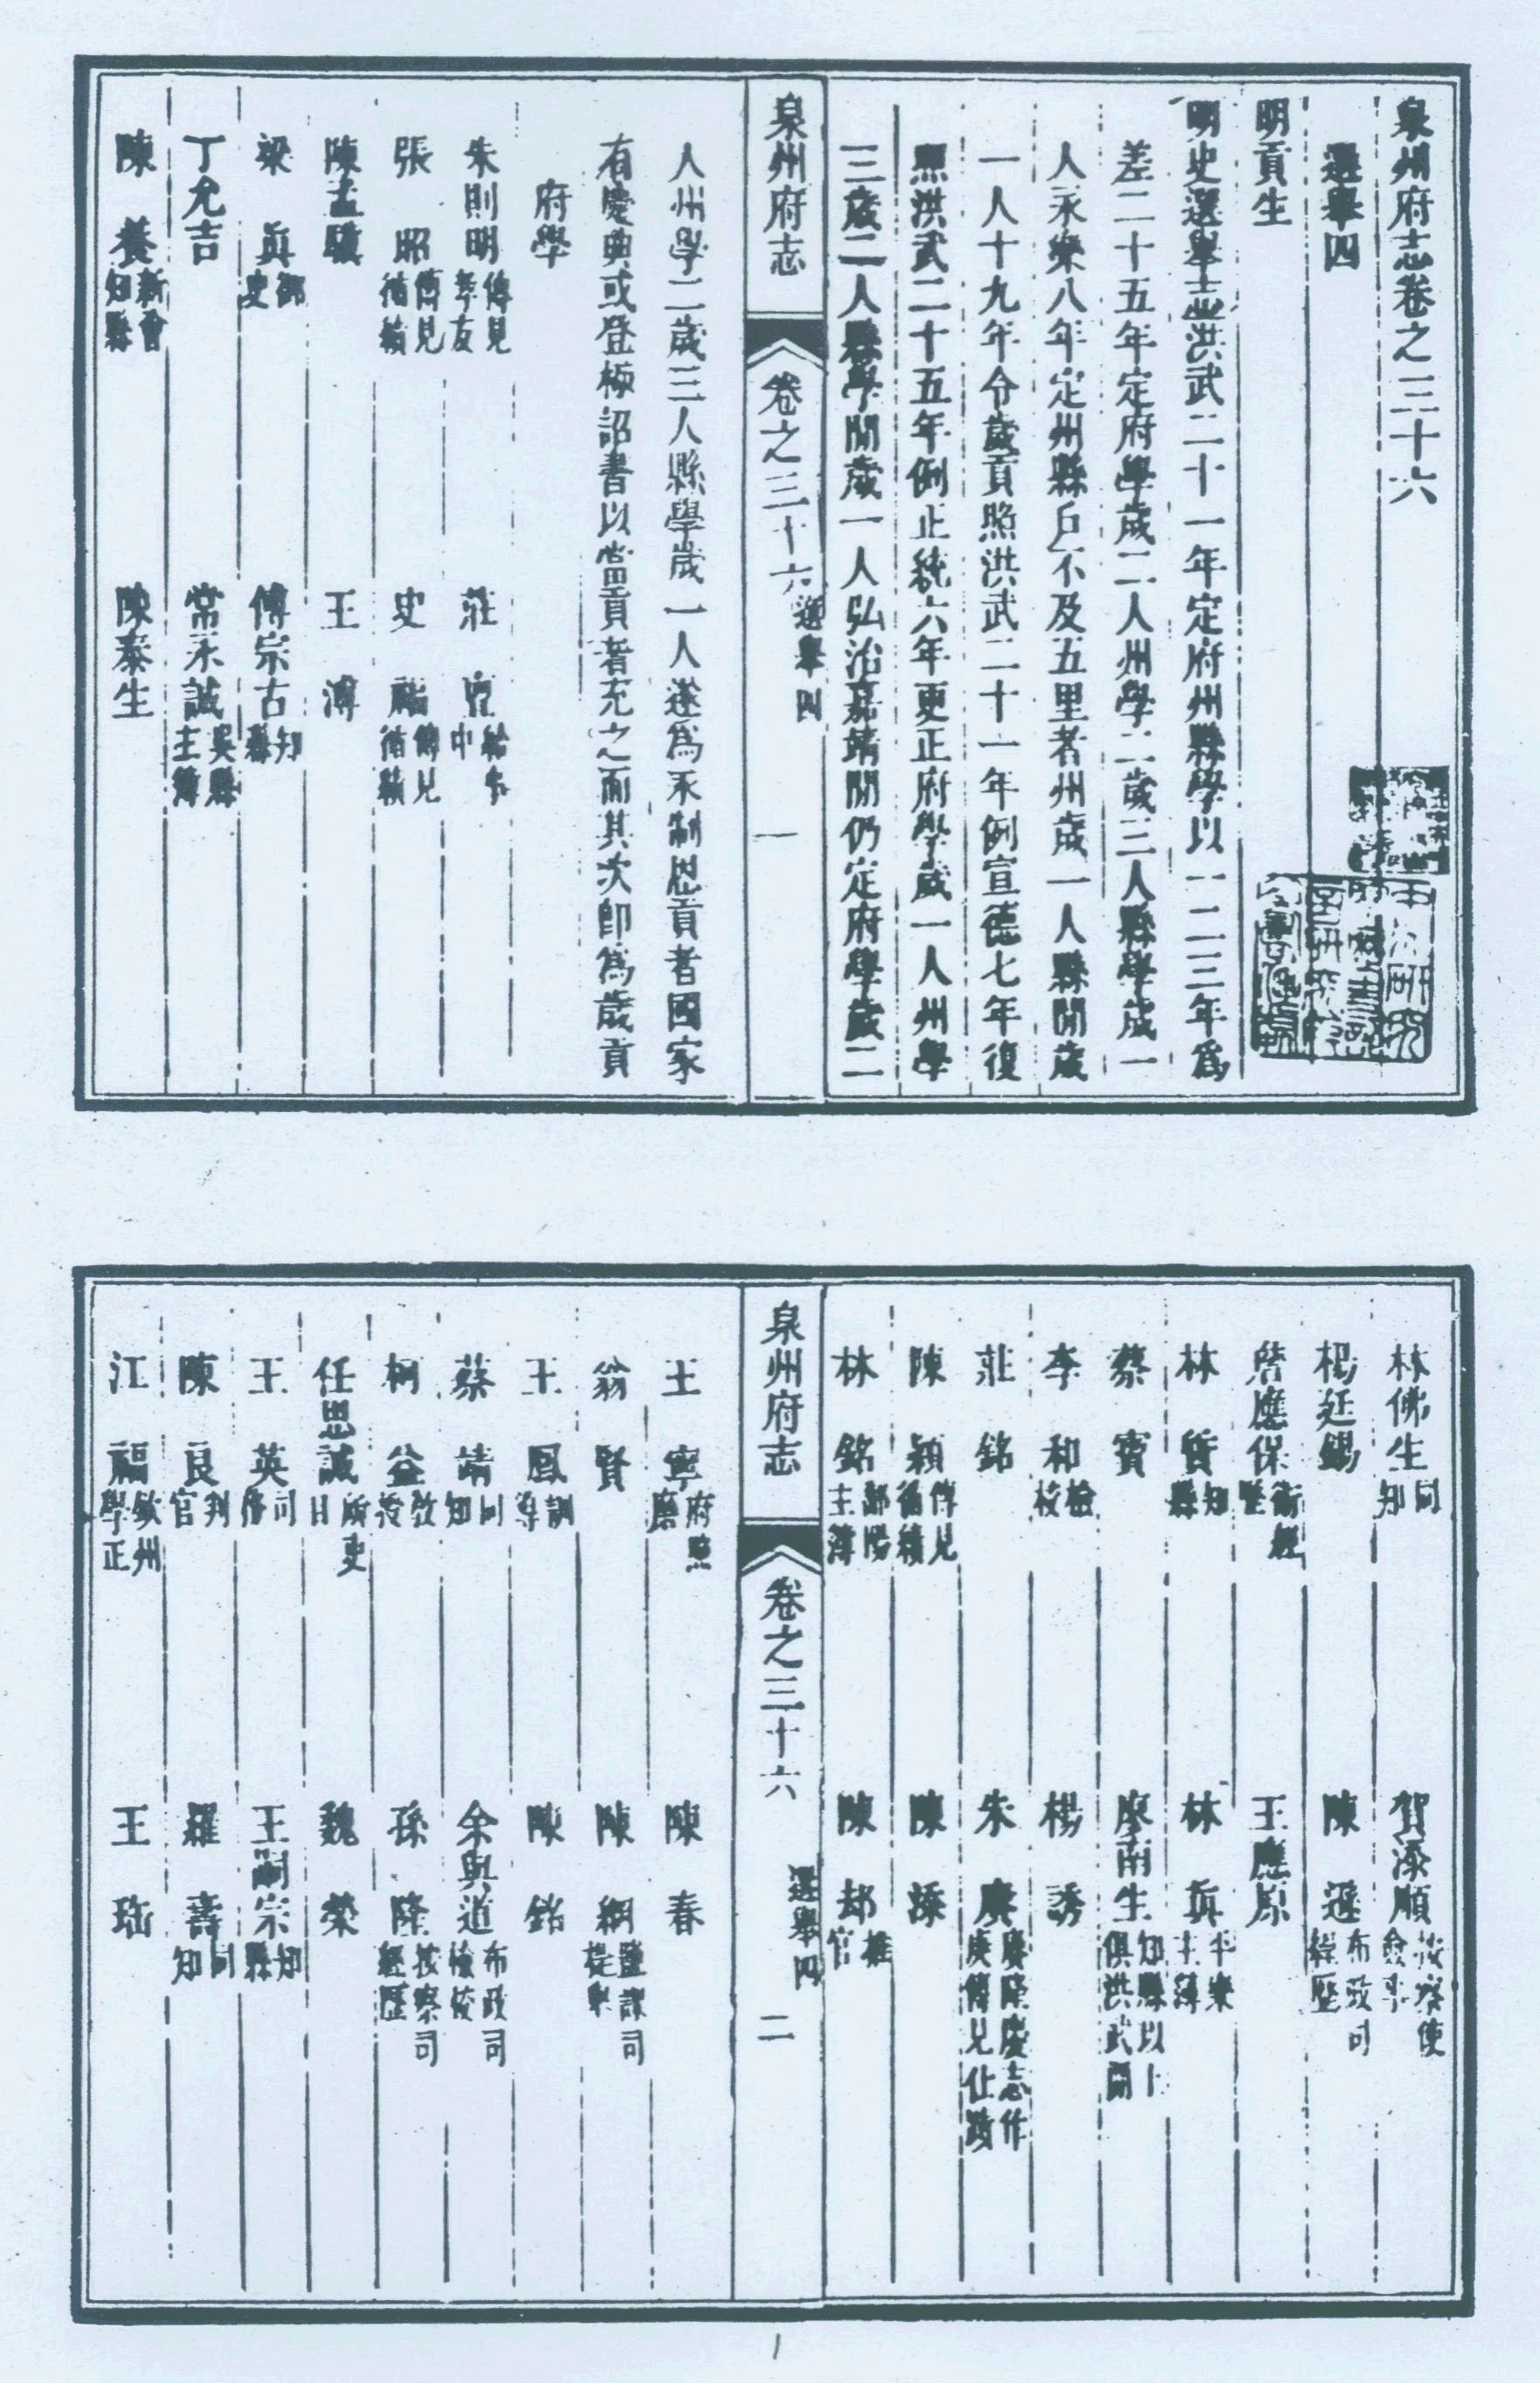 泉州府志卷之三十六
選舉四
明貢生
明史選舉志洪武二十一年定府州縣學以一二三年為
差二十五年定府學歲二人州學二歲三人縣學歲一
人永樂八年定州縣戶不及五里者州歲一人縣間歲
一人十九年令歲貢照洪武二十一年例宣德七年復
照洪武二十五年例正統六年更正府學歲一人州學
三歲二人縣學間歲一人弘治嘉靖間仍定府學歲二
泉州府志
卷之三十六 選舉四
一
人州學二歲三人縣學歲一人遂為永制恩貢者國家
有慶典或登極詔書以當貢者充之而其次即為歲貢
府學
朱則明 傳見孝友
莊 給事中
張 昭 傳見循績
史 傳見循績
陳孟驥
王 溥
梁 真 御史
傅宗古 知縣
丁允吉
常永誠 吳縣主簿
陳 養 新會知縣
陳泰生
林佛生 同知
賀添順 按察使僉事
楊廷錫
陳 遜 布政司經歷
詹應保 衛經歷
王應原
林 質 知縣
林 真 平樂主簿
蔡 寶
廖南生 知縣以上俱洪武間
李 和 檢校
楊 誘
莊 銘
朱 賡 賡隆慶志作庚傳見仕蹟
陳 穎 傳見循績
陳 添
林 銘 鄱陽主簿
陳 郁 推官
泉州府志
卷之三十六
選舉四
二
王 寧 府照磨
陳 春
翁 賢
陳 綱 鹽課司提舉
王 鳳 訓導
陳 銘
蔡 靖 同知
余與道 布政司檢校
柯 益 教授
孫 隆 按察司經歷
任思誠 所吏目
魏 榮
王 英 同知
王嗣宗 知縣
陳 良 判官
羅 壽 同知
江 福 欽州學正
王 瑎
1